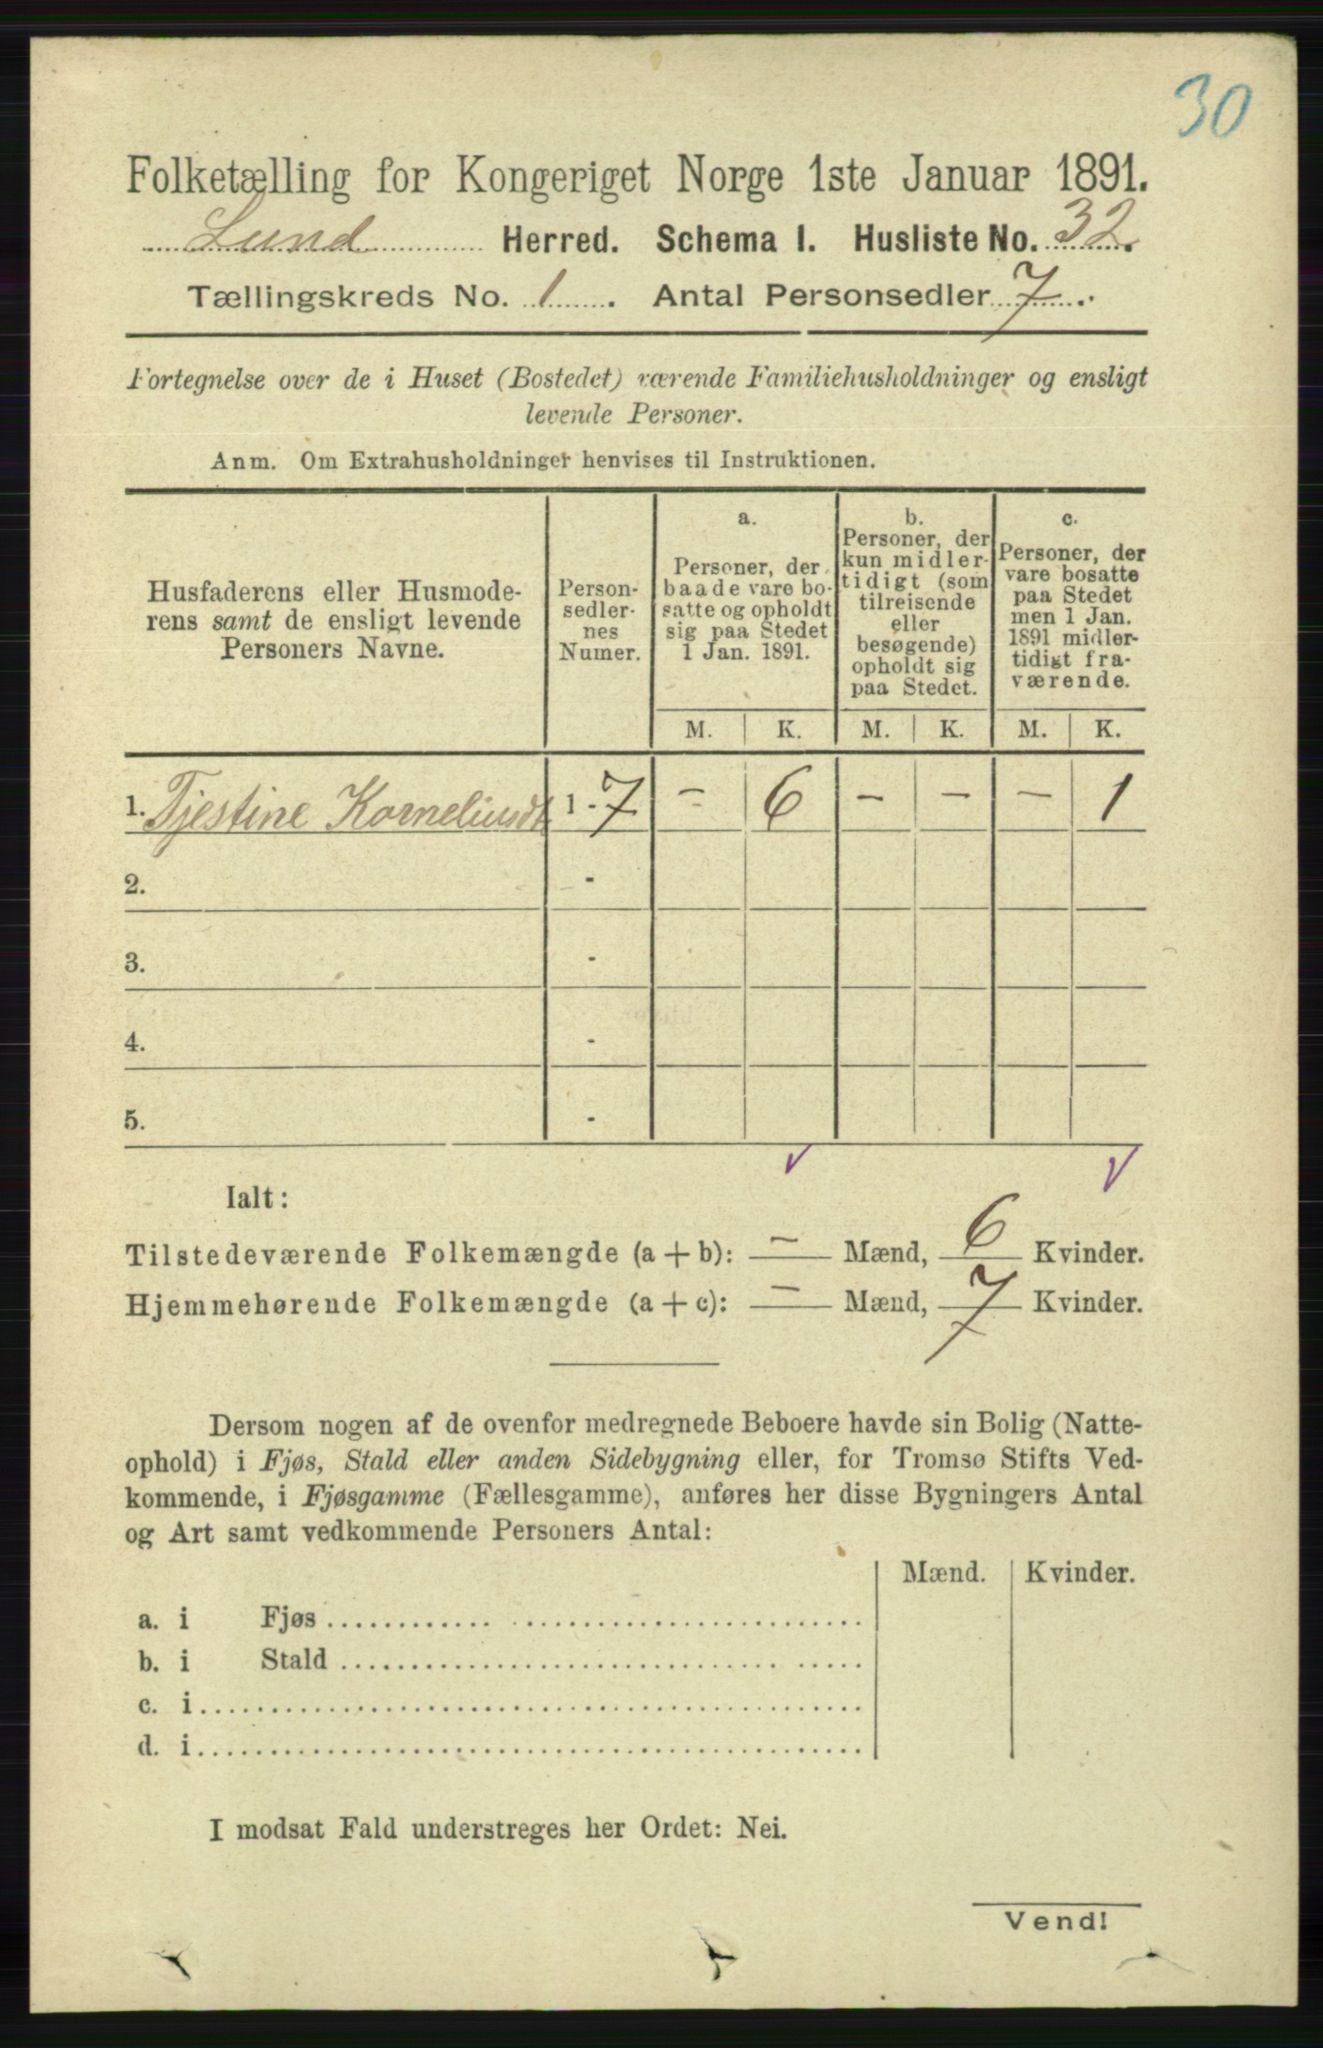 30
Folketælling for Kongeriget Norge 1ste Januar 1891.
Lund Herred. Schema I. Husliste No. 32.
Tællingskreds No. 1. Antal Personsedler 7.
Fortegnelse over de i Huset (Bostedet) værende Familiehusholdninger og ensligt
levende Personer.
Anm. Om Extrahusholdninger henvises til Instruktionen.
Husfaderens eller Husmode-
rens samt de ensligt levende
Personers Navne.
Person-
sedler-
nes
Numer.
a.
Personer, der
baade vare bo-
satte og opholdt
sig paa Stedet
1 Jan. 1891.
b.
Personer, der
kun midler-
tidigt (som
tilreisende
eller
besøgende)
opholdt sig
paa Stedet.
c.
Personer, der
vare bosatte
paa Stedet
men 1 Jan.
1891 midler-
tidigt fra-
værende.
M. K. M. K. M. K.
1. Tjestine 1 - 7 - 6 - - - 1
2. -
3. -
4. -
5. -
Ialt:
Tilstedeværende Folkemængde (a + b): - Mænd, 6 Kvinder.
Hjemmehørende Folkemængde (a + c): - Mænd, 7 Kvinder.
Dersom nogen af de ovenfor medregnede Beboere havde sin Bolig (Natte-
ophold) i Fjøs, Stald eller anden Sidebygning eller, for Tromsø Stifts Ved-
kommende, i Fjøsgamme (Fællesgamme), anføres her disse Bygningers Antal
og Art samt vedkommende Personers Antal:
Mænd. Kvinder.
a. i Fjøs
b. i Stald
c. i
d. i
I modsat Fald understreges her Ordet: Nei.
Vend!